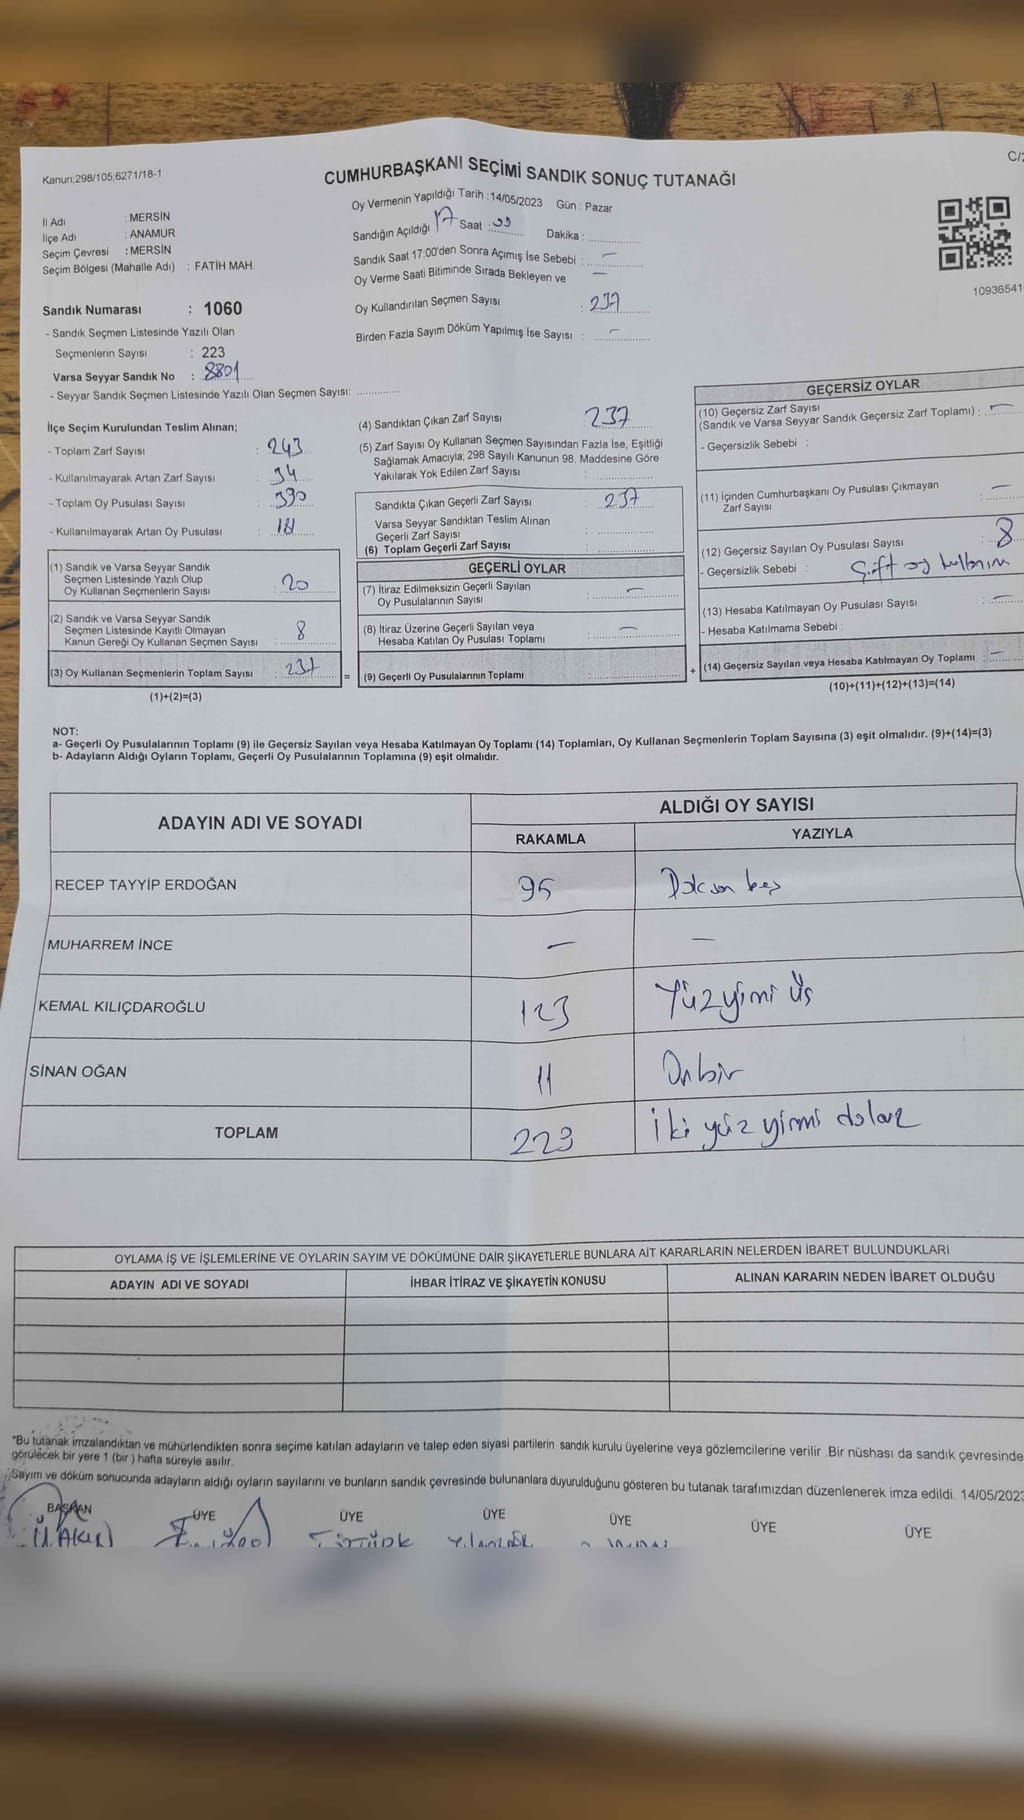 C/2
Kanun:298/105;6271/18-1
CUMHURBAŞKANI SEÇİMİ SANDIK SONUÇ TUTANAĞI
İl Adı : MERSİN
İlçe Adı : ANAMUR
Seçim Çevresi : MERSİN
Seçim Bölgesi (Mahalle Adı) : FATİH MAH.
Oy Vermenin Yapıldığı Tarih :14/05/2023 Gün : Pazar
Sandığın Açıldığı 17 Saat : Dakika :
Sandık Saat 17:00'den Sonra Açımış İse Sebebi : —
Oy Verme Saati Bitiminde Sırada Bekleyen ve —
Oy Kullandırılan Seçmen Sayısı : 237
Birden Fazla Sayım Döküm Yapılmış İse Sayısı : —
10936541
Sandık Numarası : 1060
- Sandık Seçmen Listesinde Yazılı Olan
Seçmenlerin Sayısı : 223
Varsa Seyyar Sandık No : 8801
- Seyyar Sandık Seçmen Listesinde Yazılı Olan Seçmen Sayısı:
İlçe Seçim Kurulundan Teslim Alınan;
- Toplam Zarf Sayısı : 243
- Kullanılmayarak Artan Zarf Sayısı : 34
- Toplam Oy Pusulası Sayısı : 390
- Kullanılmayarak Artan Oy Pusulası :
(1) Sandık ve Varsa Seyyar Sandık
Seçmen Listesinde Yazılı Olup
Oy Kullanan Seçmenlerin Sayısı : 20
(2) Sandık ve Varsa Seyyar Sandık
Seçmen Listesinde Kayıtlı Olmayan
Kanun Gereği Oy Kullanan Seçmen Sayısı : 8
(3) Oy Kullanan Seçmenlerin Toplam Sayısı : 237
(1)+(2)=(3)
=
(4) Sandıktan Çıkan Zarf Sayısı : 237
(5) Zarf Sayısı Oy Kullanan Seçmen Sayısından Fazla İse, Eşitliği
Sağlamak Amacıyla; 298 Sayılı Kanunun 98. Maddesine Göre
Yakılarak Yok Edilen Zarf Sayısı :
Sandıkta Çıkan Geçerli Zarf Sayısı : 237
Varsa Seyyar Sandıktan Teslim Alınan
Geçerli Zarf Sayısı :
(6) Toplam Geçerli Zarf Sayısı :
GEÇERLİ OYLAR
(7) İtiraz Edilmeksizin Geçerli Sayılan
Oy Pusulalarının Sayısı : —
(8) İtiraz Üzerine Geçerli Sayılan veya
Hesaba Katılan Oy Pusulası Toplamı : —
(9) Geçerli Oy Pusulalarının Toplamı :
+
GEÇERSİZ OYLAR
(10) Geçersiz Zarf Sayısı
(Sandık ve Varsa Seyyar Sandık Geçersiz Zarf Toplamı) : —
- Geçersizlik Sebebi :
(11) İçinden Cumhurbaşkanı Oy Pusulası Çıkmayan
Zarf Sayısı : —
(12) Geçersiz Sayılan Oy Pusulası Sayısı : 8
- Geçersizlik Sebebi : Çift oy kullanım
(13) Hesaba Katılmayan Oy Pusulası Sayısı : —
- Hesaba Katılmama Sebebi :
(14) Geçersiz Sayılan veya Hesaba Katılmayan Oy Toplamı : —
(10)+(11)+(12)+(13)=(14)
NOT:
a- Geçerli Oy Pusulalarının Toplamı (9) ile Geçersiz Sayılan veya Hesaba Katılmayan Oy Toplamı (14) Toplamları, Oy Kullanan Seçmenlerin Toplam Sayısına (3) eşit olmalıdır. (9)+(14)=(3)
b- Adayların Aldığı Oyların Toplamı, Geçerli Oy Pusulalarının Toplamına (9) eşit olmalıdır.
ADAYIN ADI VE SOYADI
ALDIĞI OY SAYISI
RAKAMLA YAZIYLA
RECEP TAYYİP ERDOĞAN 95 Doksan beş
MUHARREM İNCE — —
KEMAL KILIÇDAROĞLU 123 Yüzyimi Üş
SİNAN OĞAN 11 Onbir
TOPLAM 229 İki yüz yirmi dokuz
OYLAMA İŞ VE İŞLEMLERİNE VE OYLARIN SAYIM VE DÖKÜMÜNE DAİR ŞİKAYETLERLE BUNLARA AİT KARARLARIN NELERDEN İBARET BULUNDUKLARI
ADAYIN ADI VE SOYADI İHBAR İTİRAZ VE ŞİKAYETİN KONUSU ALINAN KARARIN NEDEN İBARET OLDUĞU
*Bu tutanak imzalandıktan ve mühürlendikten sonra seçime katılan adayların ve talep eden siyasi partilerin sandık kurulu üyelerine veya gözlemcilerine verilir .Bir nüshası da sandık çevresinde
görülecek bir yere 1 (bir ) hafta süreyle asılır.
Sayım ve döküm sonucunda adayların aldığı oyların sayılarını ve bunların sandık çevresinde bulunanlara duyurulduğunu gösteren bu tutanak tarafımızdan düzenlenerek imza edildi. 14/05/2023
BAŞKAN ÜYE ÜYE ÜYE ÜYE ÜYE ÜYE